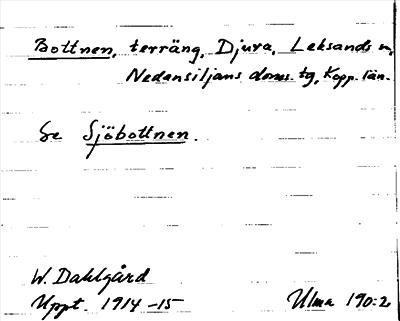 Bottnen, terräng, Djura, Leksands sn,
Nedansiljans doms. tg, Kopp. län.
Se Sjöbottnen.
W. Dahlgård
Uppt. 1914-15 Ulma 190:2